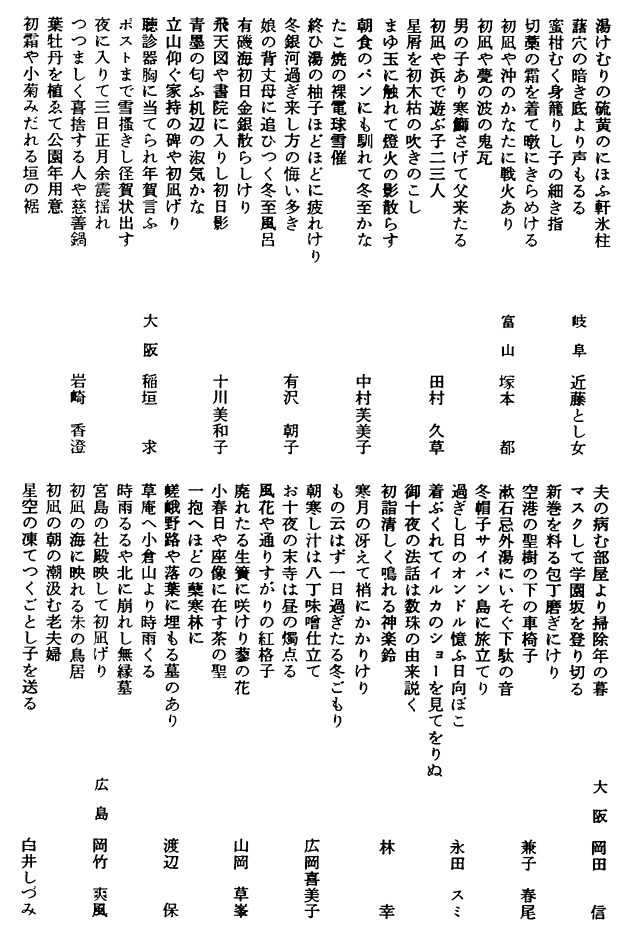 湯けむりの硫黄のにほふ軒氷柱
藷穴の暗き底より声もるる
蜜柑むく身籠りし子の細き指　岐阜　近藤とし女
切藁の霜を着て暾にきらめける
初凪や沖のかなたに戦火あり
初凪や甍の波の鬼瓦　富山　塚本　都
男の子あり寒鰤さげて父来たる
初凪や浜で遊ぶ子二三人
星屑を初木枯の吹きのこし　田村　久草
まゆ玉に触れて燈火の影散らす
朝食のパンにも馴れて冬至かな
たこ焼の裸電球雪催　中村芙美子
終ひ湯の柚子ほどほどに疲れけり
冬銀河過ぎ来し方の悔い多き
娘の背丈母に追ひつく冬至風呂　有沢　朝子
有磯海初日金銀散らしけり
飛天図や書院に入りし初日影
青墨の匂ふ机辺の淑気かな　十川美和子
立山仰ぐ家持の碑や初凪げり
聴診器胸に当てられ年賀言ふ
ポストまで雪掻きし径賀状出す　大阪　稲垣　求
夜に入りて三日正月余震揺れ
つつましく喜捨する人や慈善鍋
葉牡丹を植ゑて公園年用意　岩崎　香澄
初霜や小菊みだれる垣の裾
夫の病む部屋より掃除年の暮
マスクして学園坂を登り切る　大阪　岡田　信
新巻を料る包丁磨ぎにけり
空港の聖樹の下の車椅子
漱石忌外湯にいそぐ下駄の音　兼子　春尾
冬帽子サイパン島に旅立てり
過ぎし日のオンドル憶ふ日向ぼこ
着ぶくれてイルカのショーを見てをりぬ　永田　スミ
御十夜の法話は数珠の由来説く
初詣清しく鳴れる神楽鈴
寒月の冴えて梢にかかりけり　林　幸
もの云はず一日過ぎたる冬ごもり
朝寒し汁は八丁味噌仕立て
お十夜の末寺は昼の燭点る　広岡喜美子
風花や通りすがりの紅格子
廃れたる生簀に咲けり蓼の花
小春日や座像に在す茶の聖　山岡　草峯
一抱へほどの藁寒林に
嵯峨野路や落葉に埋もる墓のあり
草庵へ小倉山より時雨くる　渡辺　保
時雨るるや北に崩れし無縁墓
宮島の社殿映して初凪げり
初凪の海に映れる朱の鳥居　広島　岡竹　爽風
初凪の朝の潮汲む老夫婦
星空の凍てつくごとし子を送る　白井しづみ